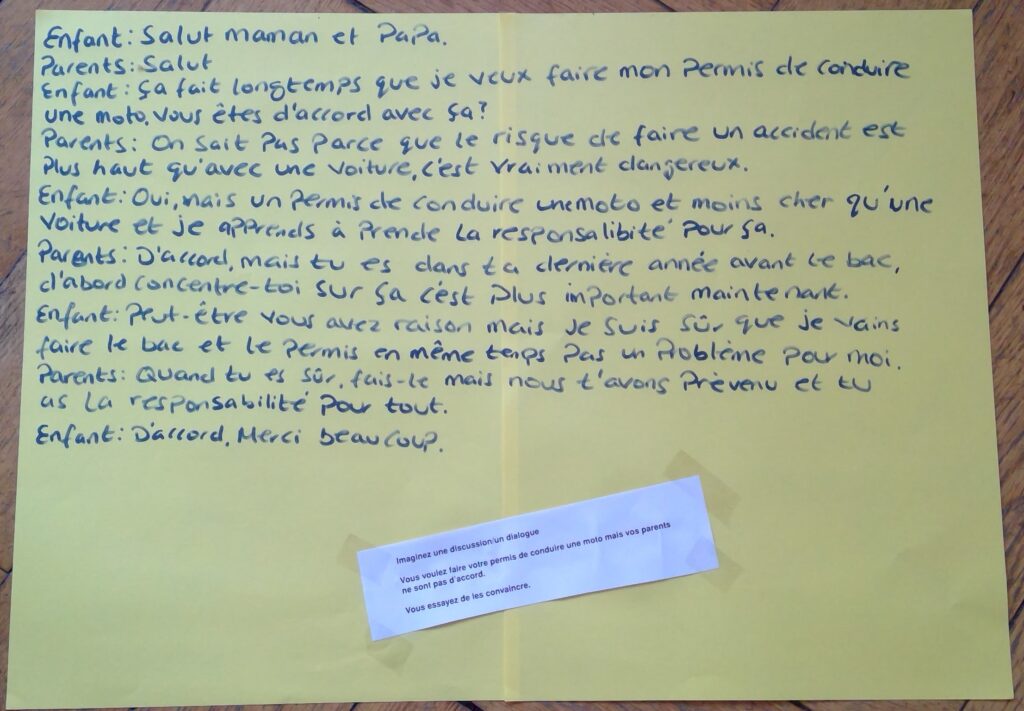 Enfant: Salut maman et Papa.
Parents: Salut
Enfant: ça fait longtemps que je veux faire mon Permis de conduire
une moto. Vous êtes d'accord avec ça?
Parents: On sait Pas Parce que le risque de faire un accident est
Plus haut qu'avec une voiture, c'est vraiment dangereux.
Enfant: Oui, mais un Permis de conduire une moto et moins cher qu'une
voiture et je apprends à Prende la responsalibité Pour ça.
Parents: D'accord, mais tu es dans ta dernière année avant le bac,
d'abord concentre-toi sur ça c'est Plus important maintenant.
Enfant: Peut-être vous avez raison mais je suis sûr que je vains
faire le bac et le Permis en même temps Pas un Problème pour moi.
Parents: Quand tu es sûr, fais-le mais nous t'avons Prèvenu et tu
as la responsabilité Pour tout.
Enfant: D'accord, Merci beaucoup.
Imaginez une discussion/un dialogue
Vous voulez faire votre permis de conduire une moto mais vos parents
ne sont pas d'accord.
Vous essayez de les convaincre.